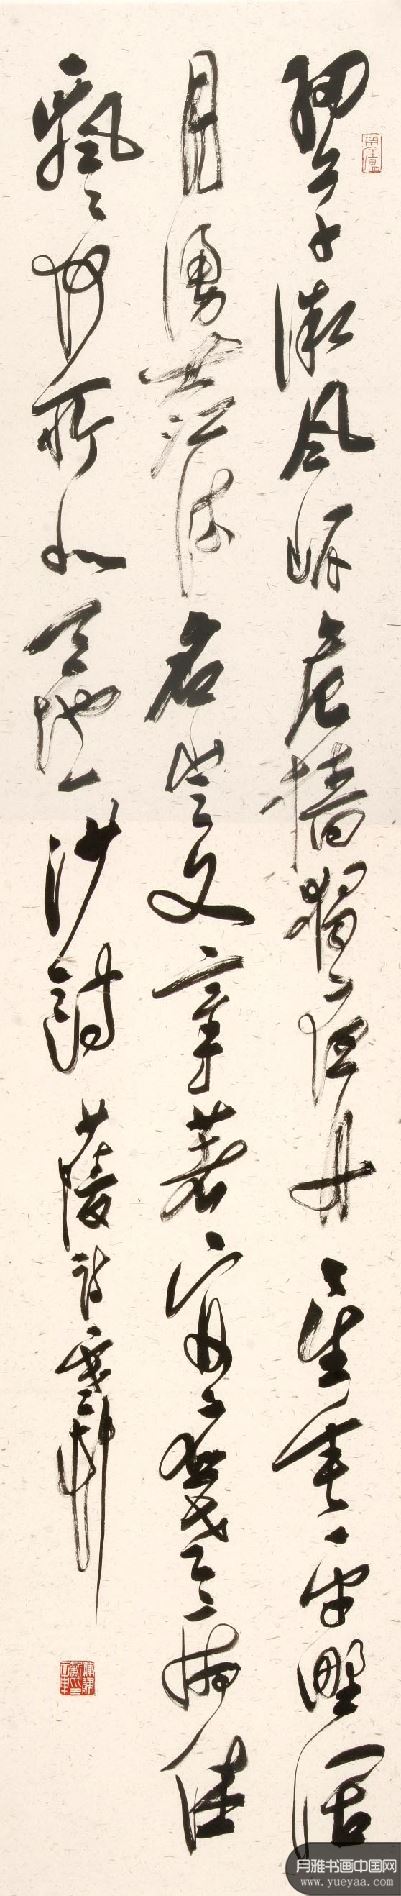 細草微風岸危檣獨夜舟星垂平野闊
月湧大江流名豈文章著官應老病休
飄飄何所似天地一沙鷗 杜陵詩
月雅书画中国网
www.yueyaa.com